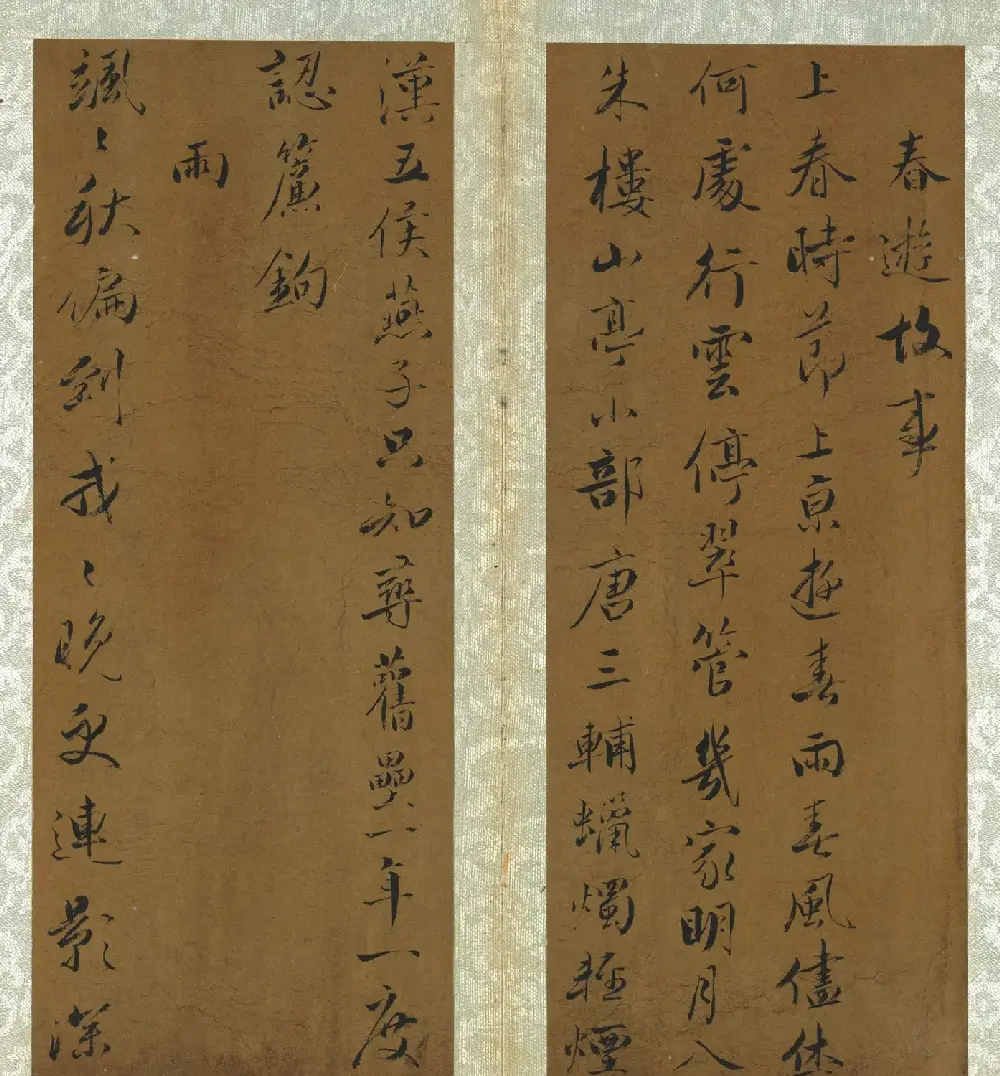 春遊故事
上春時節上京遊春雨春風儘休
何處行雲停翠管幾家明月八
朱樓山亭小部唐三輔蠟燭輕煙
漢五侯燕子只知尋舊壘一年一度
認簾鉤
雨
颯〻秋偏到戎〻晚更連影深